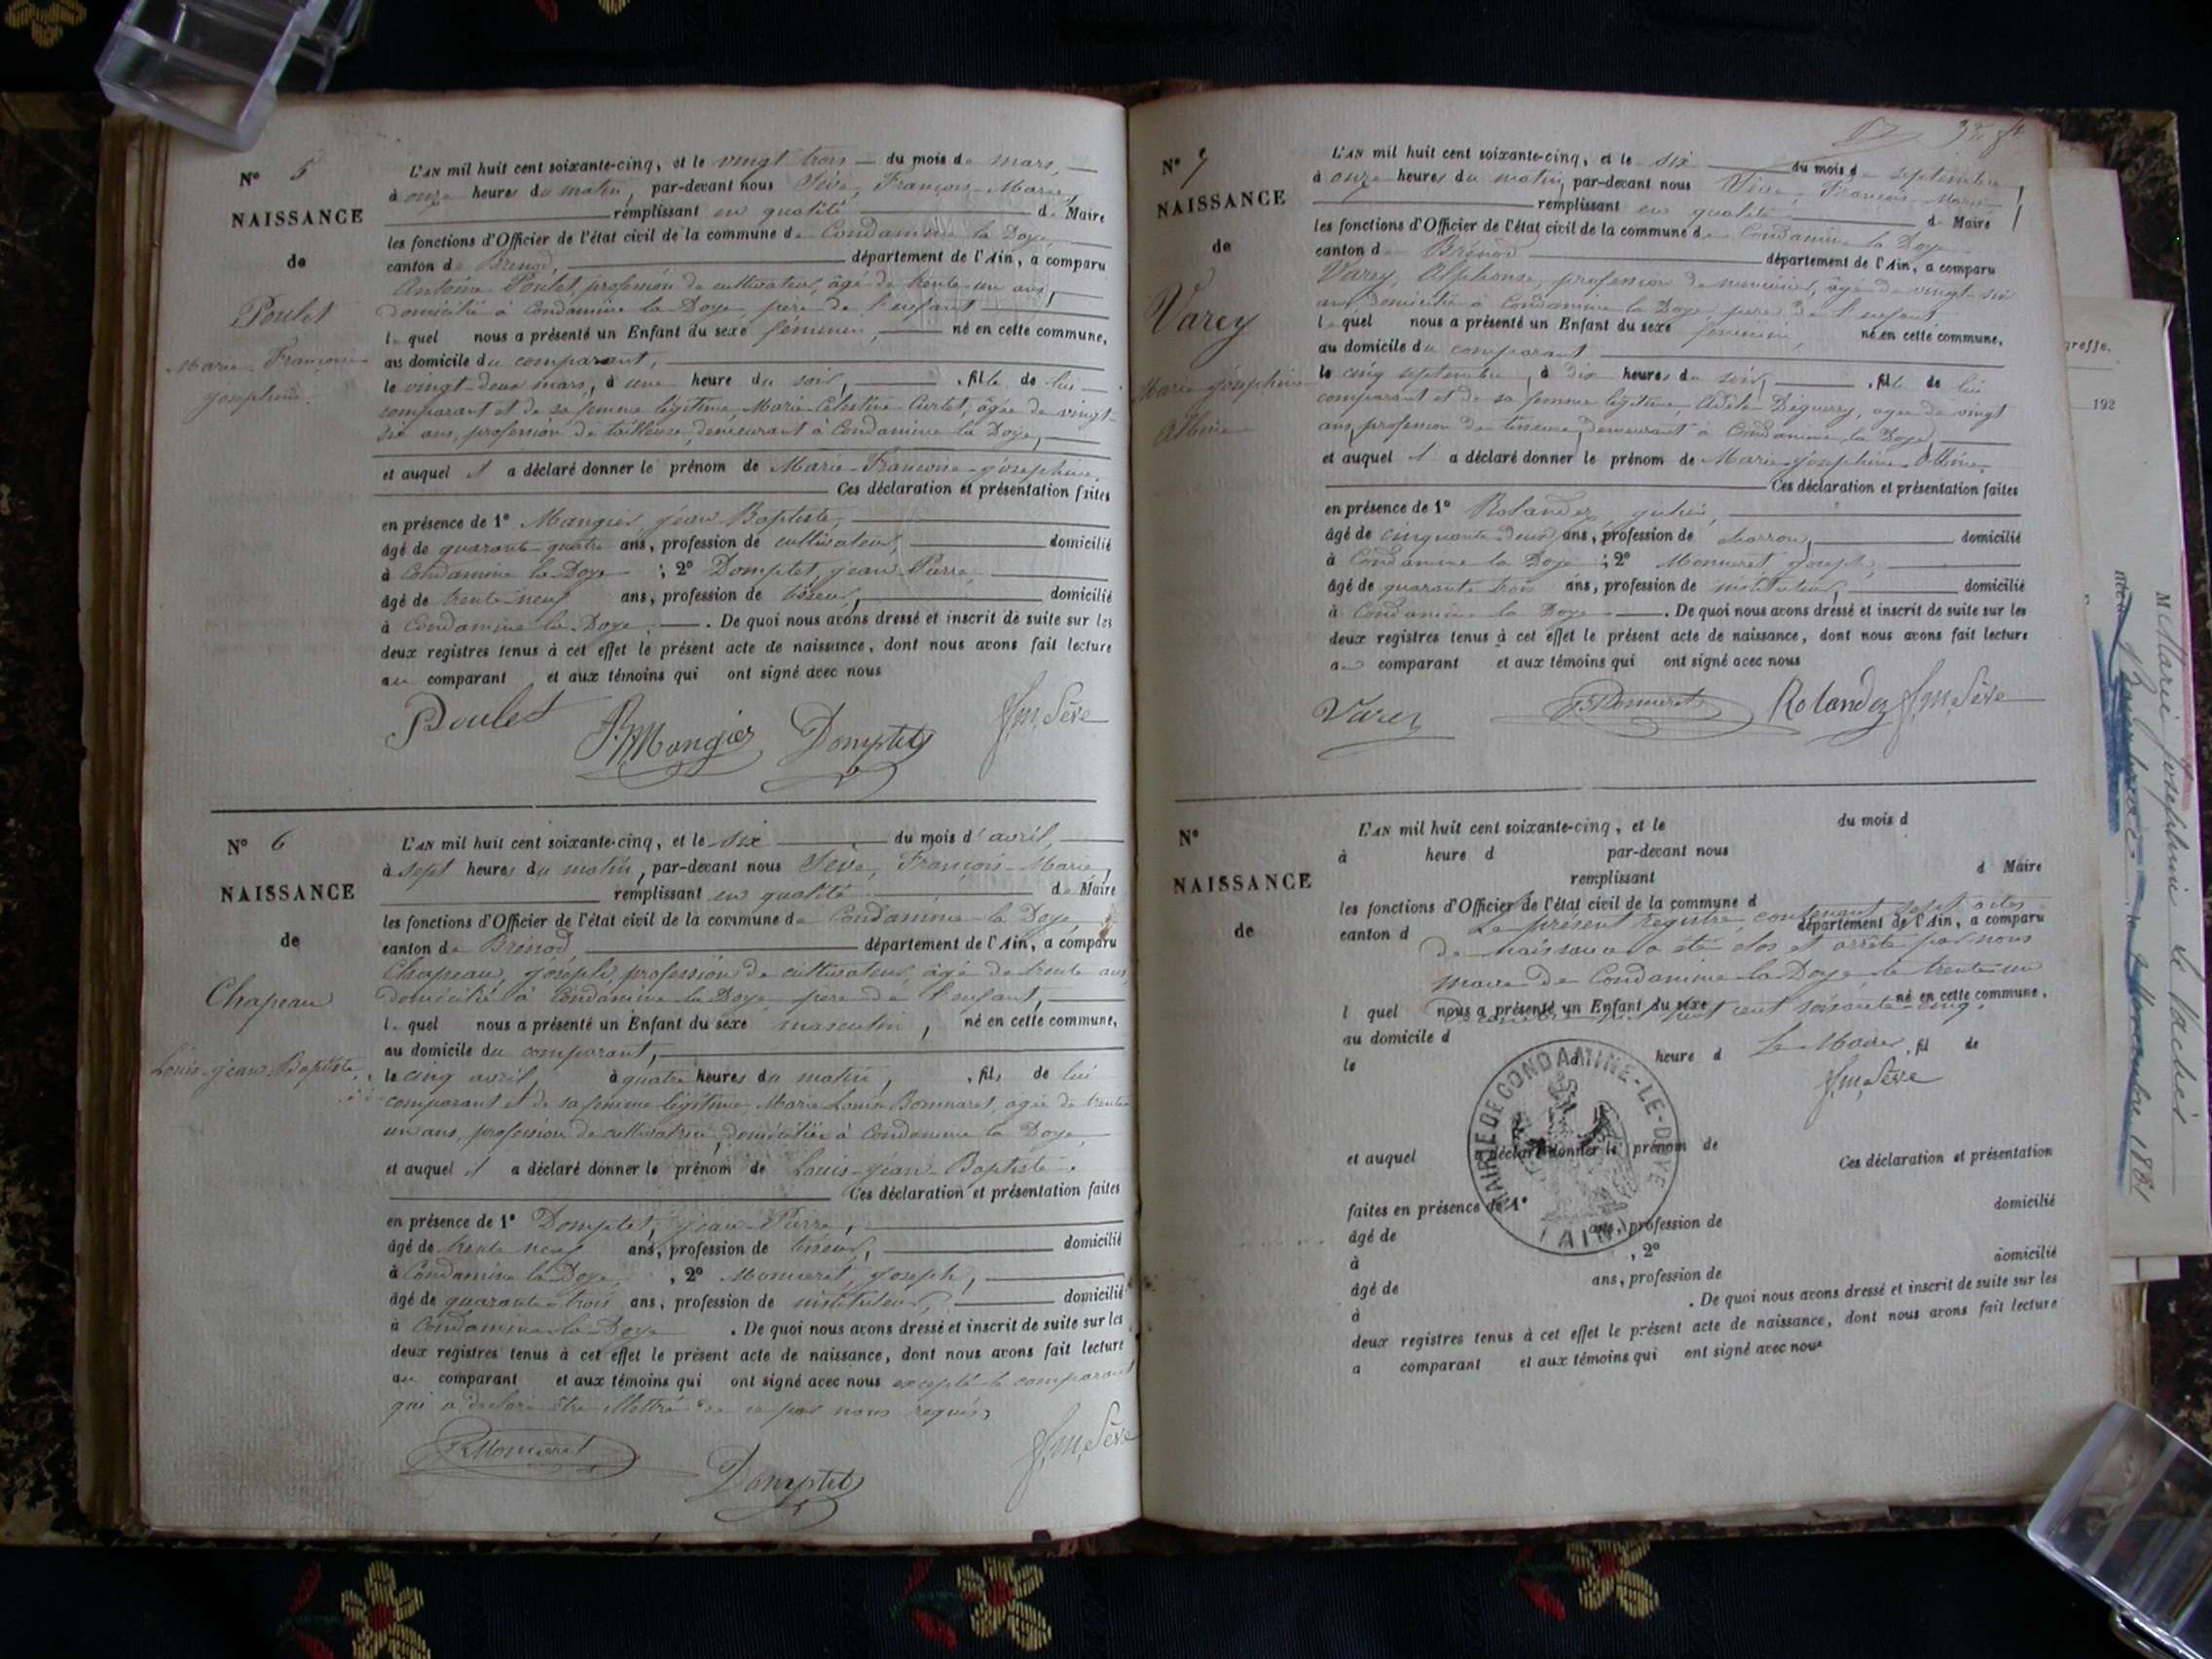 N° 5
NAISSANCE
de
Poulet
Marie Françoise
Joséphine
L'AN mil huit cent soixante-cinq, et le vingt trois du mois de mars,
à onze heures du matin, par-devant nous Sève, François-Marie,
remplissant en qualité de Maire
les fonctions d'Officier de l'état civil de la commune de Condamine la Doye,
canton de Brenod, département de l'Ain, a comparu
Antoine Poulet, profession de cultivateur, âgé de trente-un ans,
domicilié à Condamine la Doye, père de l'enfant
lequel nous a présenté un Enfant du sexe féminin, né en cette commune,
au domicile du comparant,
le vingt-deux mars, à une heure du soir, fille de lui
comparant et de sa femme légitime, Marie Célestine Curtet, âgée de vingt-
six ans, profession de tailleuse, demeurant à Condamine la Doye,
et auquel il a déclaré donner le prénom de Marie-Françoise-Joséphine
Ces déclaration et présentation faites
en présence de 1° Mangier, Jean Baptiste,
âgé de quarante-quatre ans, profession de cultivateur, domicilié
à Condamine la Doye ; 2° Domptet, Jean-Pierre,
âgé de trente neuf ans, profession de tisseur, domicilié
à Condamine la Doye. De quoi nous avons dressé et inscrit de suite sur les
deux registres tenus à cet effet le présent acte de naissance, dont nous avons fait lecture
au comparant et aux témoins qui ont signé avec nous
Poulet Mangier Domptet f.m. Sève
N° 6
NAISSANCE
de
Chapeau
Louis-Jean-Baptiste
L'AN mil huit cent soixante-cinq, et le six du mois d'avril,
à sept heures du matin, par-devant nous Sève, François-Marie,
remplissant en qualité de Maire
les fonctions d'Officier de l'état civil de la commune de Condamine-la Doye,
canton de Brénod, département de l'Ain, a comparu
Chapeau, Joseph, profession de cultivateur, âgé de trente ans,
domicilié à Condamine la Doye, père de l'enfant,
lequel nous a présenté un Enfant du sexe masculin, né en cette commune,
au domicile du comparant,
le cinq avril, à quatre heures du matin, fils de lui
comparant et de sa femme légitime Marie Louise Bonnaret, âgée de trente
un ans, profession de cultivatrice, domiciliée à Condamine la Doye,
et auquel il a déclaré donner le prénom de Louis-Jean-Baptiste.
Ces déclaration et présentation faites
en présence de 1° Domptet, Jean-Pierre,
âgé de trente neuf ans, profession de tisseur, domicilié
à Condamine la Doye, 2° Monneret, Joseph,
âgé de quarante-trois ans, profession de instituteur, domicilié
à Condamine-la-Doye. De quoi nous avons dressé et inscrit de suite sur les
deux registres tenus à cet effet le présent acte de naissance, dont nous avons fait lecture
au comparant et aux témoins qui ont signé avec nous excepté le comparant
qui a déclaré être illettré de ce par nous requis,
Monneret Domptet f.m. Sève
N° 7
NAISSANCE
de
Varey
Marie-Joséphine
Albine
L'AN mil huit cent soixante-cinq, et le six du mois de septembre,
à onze heures du matin, par-devant nous Sève, François-Marie
remplissant en qualité de Maire
les fonctions d'Officier de l'état civil de la commune de Condamine la Doye
canton de Brénod département de l'Ain, a comparu
Varey, Alphonse, profession de menuisier, âgé de vingt-six
ans, domicilié à Condamine la Doye père de l'enfant
lequel nous a présenté un Enfant du sexe féminin, né en cette commune,
au domicile du comparant
le cinq septembre, à dix heures du soir, fille de lui
comparant et de sa femme légitime, Adèle âgée de vingt
ans, profession de tisseuse, demeurant à Condamine la Doye,
et auquel il a déclaré donner le prénom de Marie-Joséphine-Albine.
Ces déclaration et présentation faites
en présence de 1° Rolandez,
âgé de cinquante-deux ans, profession de domicilié
à Condamine la Doye ; 2° Monneret, Joseph,
âgé de quarante trois ans, profession de instituteur, domicilié
à Condamine la Doye. De quoi nous avons dressé et inscrit de suite sur les
deux registres tenus à cet effet le présent acte de naissance, dont nous avons fait lecture
au comparant et aux témoins qui ont signé avec nous
Varey Monneret Rolandez f.m. Sève
N°
NAISSANCE
de
L'AN mil huit cent soixante-cinq, et le du mois d
à heure d par-devant nous
remplissant d Maire
les fonctions d'Officier de l'état civil de la commune d
canton d département de l'Ain, a comparu
Le présent registre, contenant sept actes
de naissance a été clos et arrêté par nous
maire de Condamine-la-Doye, le trente-un
décembre mil huit cent soixante-cinq.
l quel nous a présenté un Enfant du sexe né en cette commune,
au domicile d
le à heure d , fil de
Le Maire
f.m. Sève
MAIRIE DE CONDAMINE-LE-DOYE
(AIN)
et auquel a déclaré donner le prénom de
Ces déclaration et présentation
faites en présence de 1° domicilié
âgé de ans, profession de
à , 2° domicilié
âgé de ans, profession de
à . De quoi nous avons dressé et inscrit de suite sur les
deux registres tenus à cet effet le présent acte de naissance, dont nous avons fait lecture
a comparant et aux témoins qui ont signé avec nous
greffe,
192
M Marie Joséphine
novembre 1881